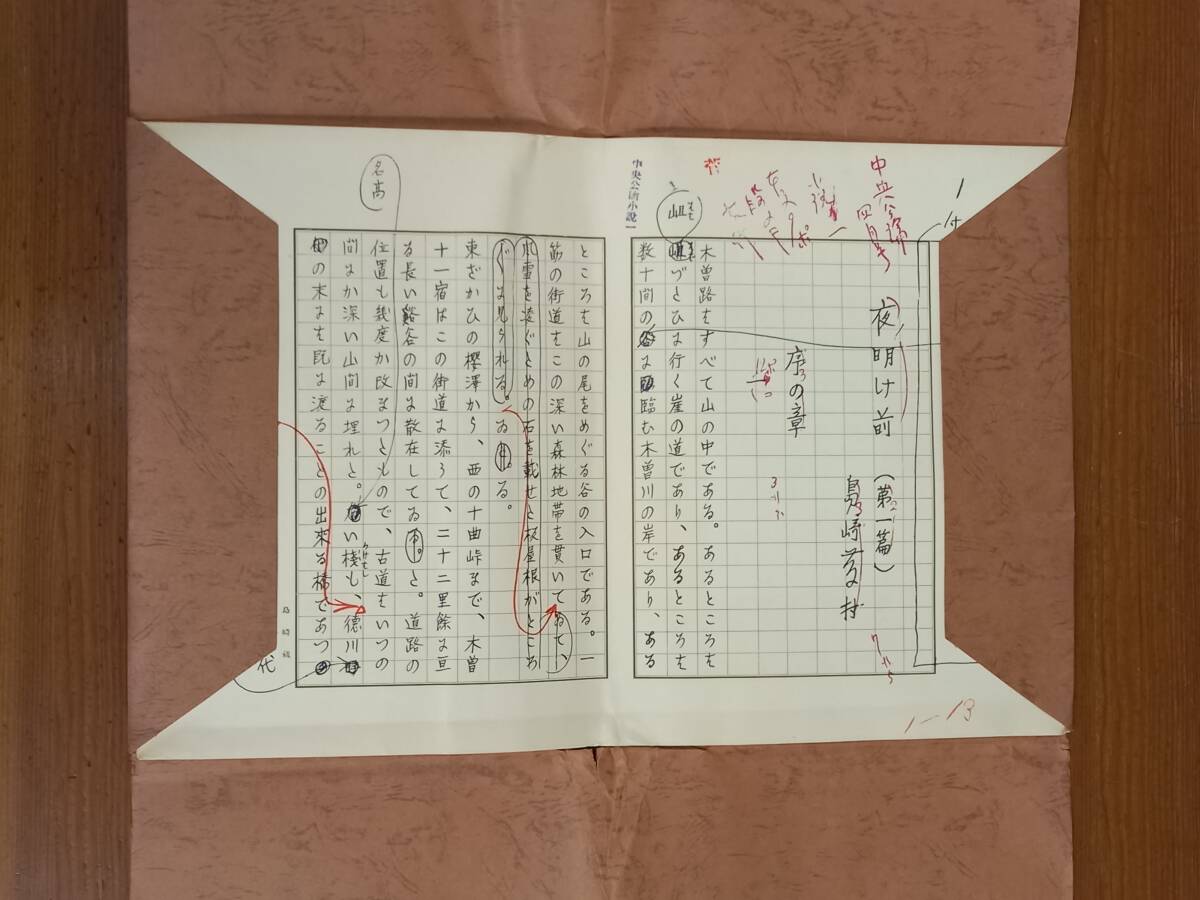 1
中央公論
四月号
夜明け前 (第一篇)
島崎藤村
序の章
木曽路はすべて山の中である。あるところは
岨づたひに行く崖の道であり、あるところは
数十間のに臨む木曽川の岸であり、ある
1—13
中央公論小説
ところは山の尾をめぐる谷の入口である。一
筋の街道はこの深い森林地帯を貫いてゐて、
風雪を凌ぐための石を載せた板屋根がところ
〴〵に見られる。ゐる。
東ざかひの櫻澤から、西の十曲峠まで、木曽
十一宿はこの街道に添うて、二十二里餘に亘
る長い谿谷の間に散在してゐた。道路の
位置も幾度か改まつたもので、古道はいつの
間にか深い山間に埋れた。い棧も、徳川
名高
かけはし
の末には既に渡ることの出來る橋であつ
代